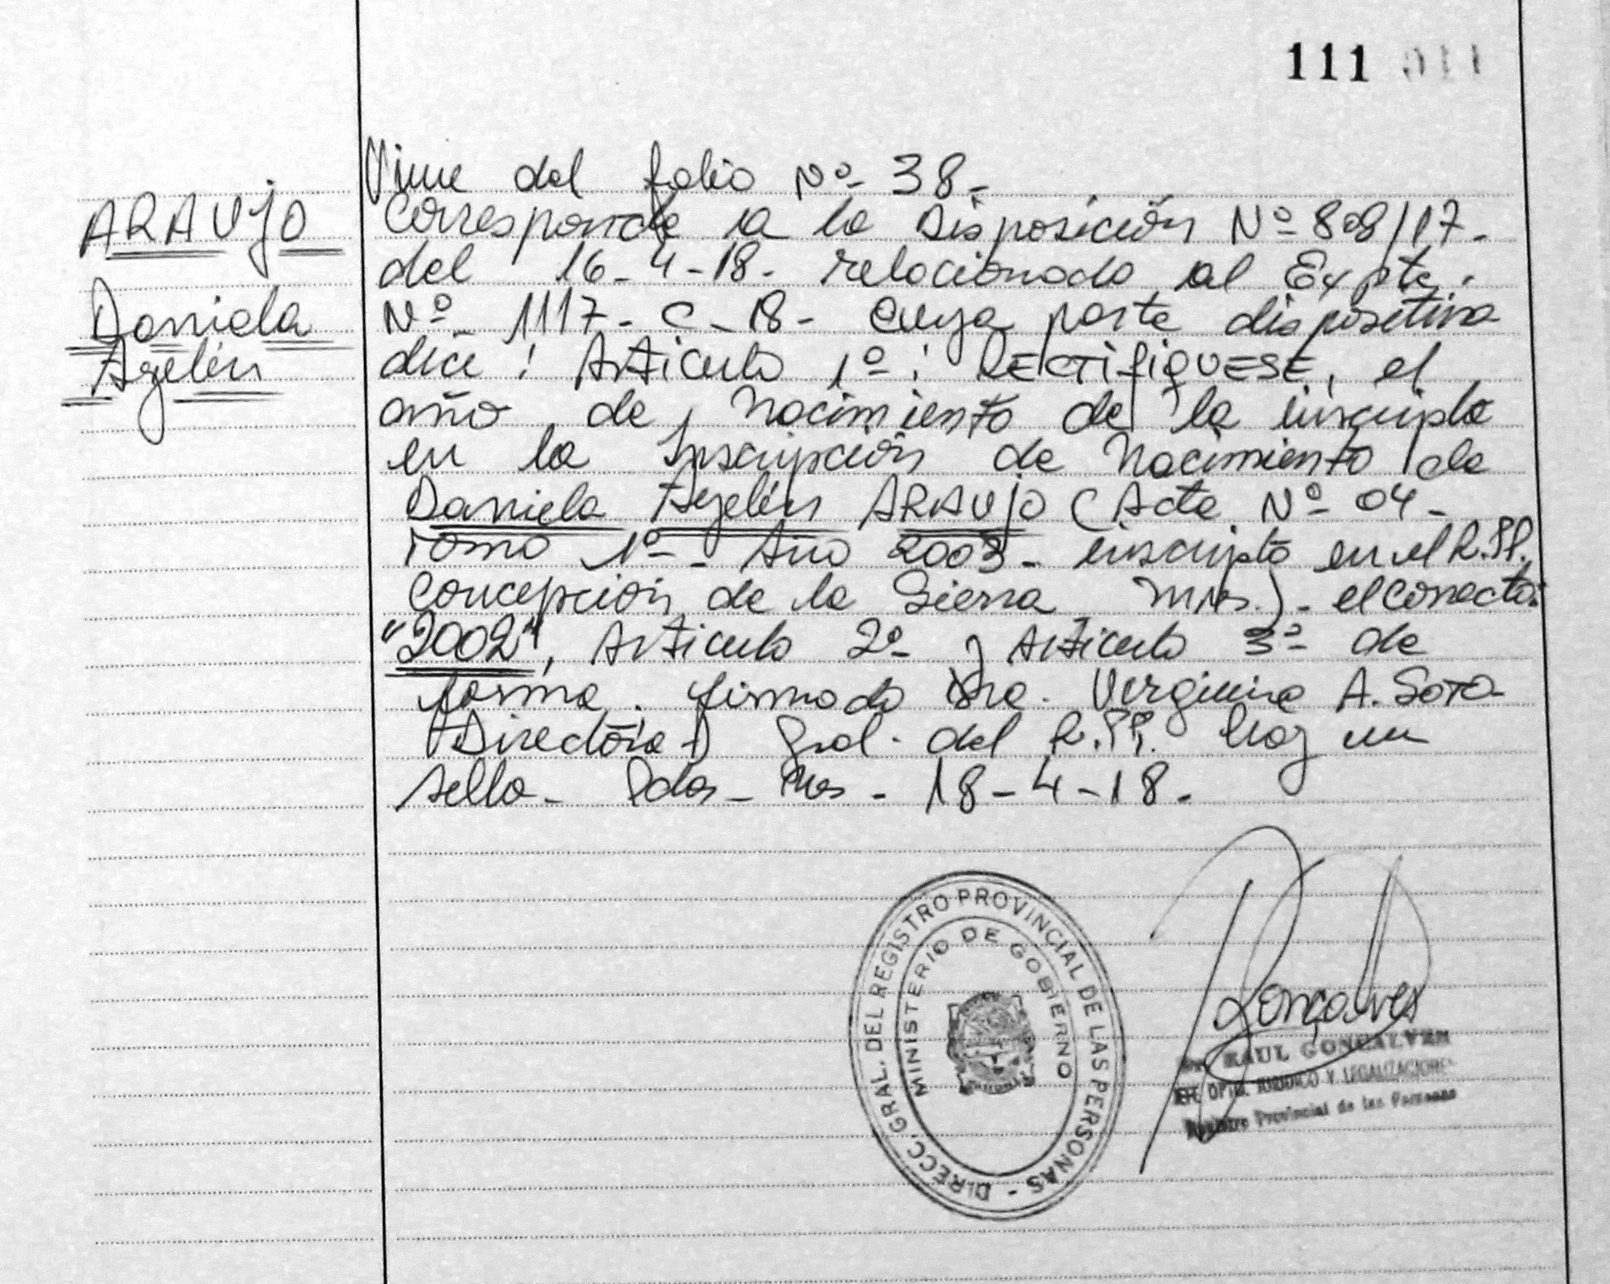 111
ARAUJO
Daniela
Ayelén
Viene del folio Nº 38-
Corresponde a la Disposición Nº 808/17-
del 16-4-18- relacionado al Expte.
Nº- 1117-C-18- cuya parte dispositiva
dice: Artículo 1º: RECTIFIQUESE, el
año de Nacimiento de la inscripta
en la Inscripción de Nacimiento de
Daniela Ayelén ARAUJO (Acta Nº 04-
Tomo 1º- Año 2003- inscripto en el R.PP.
Concepción de la Sierra Mnes.)- el correcto:
"2002", Artículo 2º y Artículo 3º de
forma. firmado Dra. Verginia A. Soto
Directora Gral. del R.PP. hay un
sello- Pdas- Mnes- 18-4-18.
DIRECC. GRAL. DEL REGISTRO PROVINCIAL DE LAS PERSONAS -
MINISTERIO DE GOBIERNO
Gonçalves
RAUL GONCALVES
JEFE DPTO. JURIDICO Y LEGALIZACIONES
Registro Provincial de las Personas